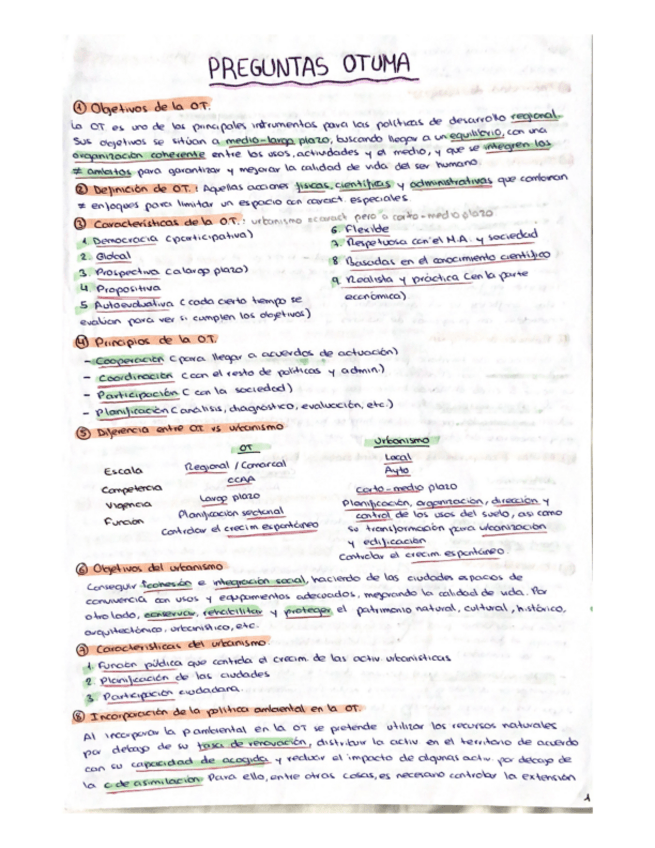 PREGUNTAS OTUMA
① Objetivos de la OT:
La OT es uno de los principales instrumentos para las políticas de desarrollo regional.
Sus objetivos se sitúan a medio-largo plazo, buscando llegar a un equilibrio, con una
organización coherente entre los usos, actividades y el medio, y que se integren los
≠ ámbitos para garantizar y mejorar la calidad de vida del ser humano.
② Definición de OT.: Aquellas acciones físicas, científicas y administrativas que combinan
≠ enfoques para limitar un espacio con caract. especiales.
③ Características de la OT.: urbanismo = caract pero a corto-medio plazo
1. Democracia (participativa)
2. Global
3. Prospectiva (a largo plazo)
4. Propositiva
5. Autoevaluativa (cada cierto tiempo se
evalúan para ver si cumplen los objetivos)
6. Flexible
7. Respetuosa con el M.A. y sociedad
8 Basadas en el conocimiento científico
9. Realista y práctica (en la parte
económica)
④ Principios de la OT.
- Cooperación (para llegar a acuerdos de actuación)
- Coordinación (con el resto de políticas y admin.)
- Participación (con la sociedad)
- Planificación (análisis, diagnóstico, evaluación, etc.)
⑤ Diferencia entre OT vs urbanismo
OT Urbanismo
Escala Regional / Comarcal Local
Competencia CCAA Ayto
Vigencia Largo plazo corto-medio plazo
Función Planificación sectorial Planificación, organización, dirección y
Controlar el crecim espontáneo control de los usos del suelo, así como
su transformación para urbanización
y edificación
Controlar el crecim. espontáneo.
⑥ Objetivos del urbanismo
Conseguir cohesión e integración social, haciendo de las ciudades espacios de
convivencia con usos y equipamentos adecuados, mejorando la calidad de vida. Por
otro lado, conservar, rehabilitar y proteger el patrimonio natural, cultural, histórico,
arquitectónico, urbanístico, etc.
⑦ Características del urbanismo
1. Función pública que controla el crecim. de las activ urbanísticas
2. Planificación de las ciudades
3. Participación ciudadana
⑧ Incorporación de la política ambiental en la OT.
Al incorporar la p ambiental en la OT se pretende utilizar los recursos naturales
por debajo de su tasa de renovación, distribuir la activ en el territorio de acuerdo
con su capacidad de acogida y reducir el impacto de algunas activ por debajo de
la c de asimilación. Para ello, entre otras cosas, es necesario controlar la extensión
1